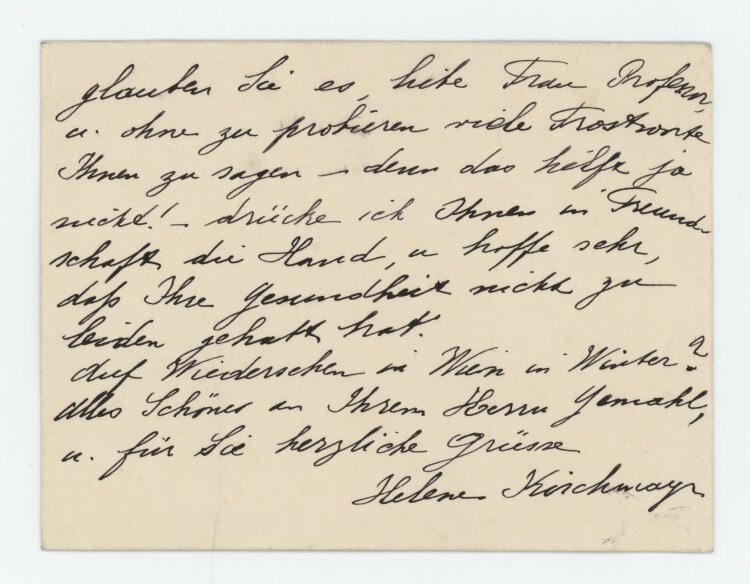 glauben Sie es, liebe Frau Professor,
u. ohne zu probieren viele Trostworte
Ihnen zu sagen – denn das hilft ja
nicht! – drücke ich Ihnen in Freund-
schaft die Hand, u hoffe sehr,
daß Ihre Gesundheit nicht zu
leiden gehabt hat.
Auf Wiedersehen in Wien in Winter?
Alles Schöne an Ihrem Herrn Gemahl,
u. für Sie herzliche Grüsse
Helene Kirchmayr